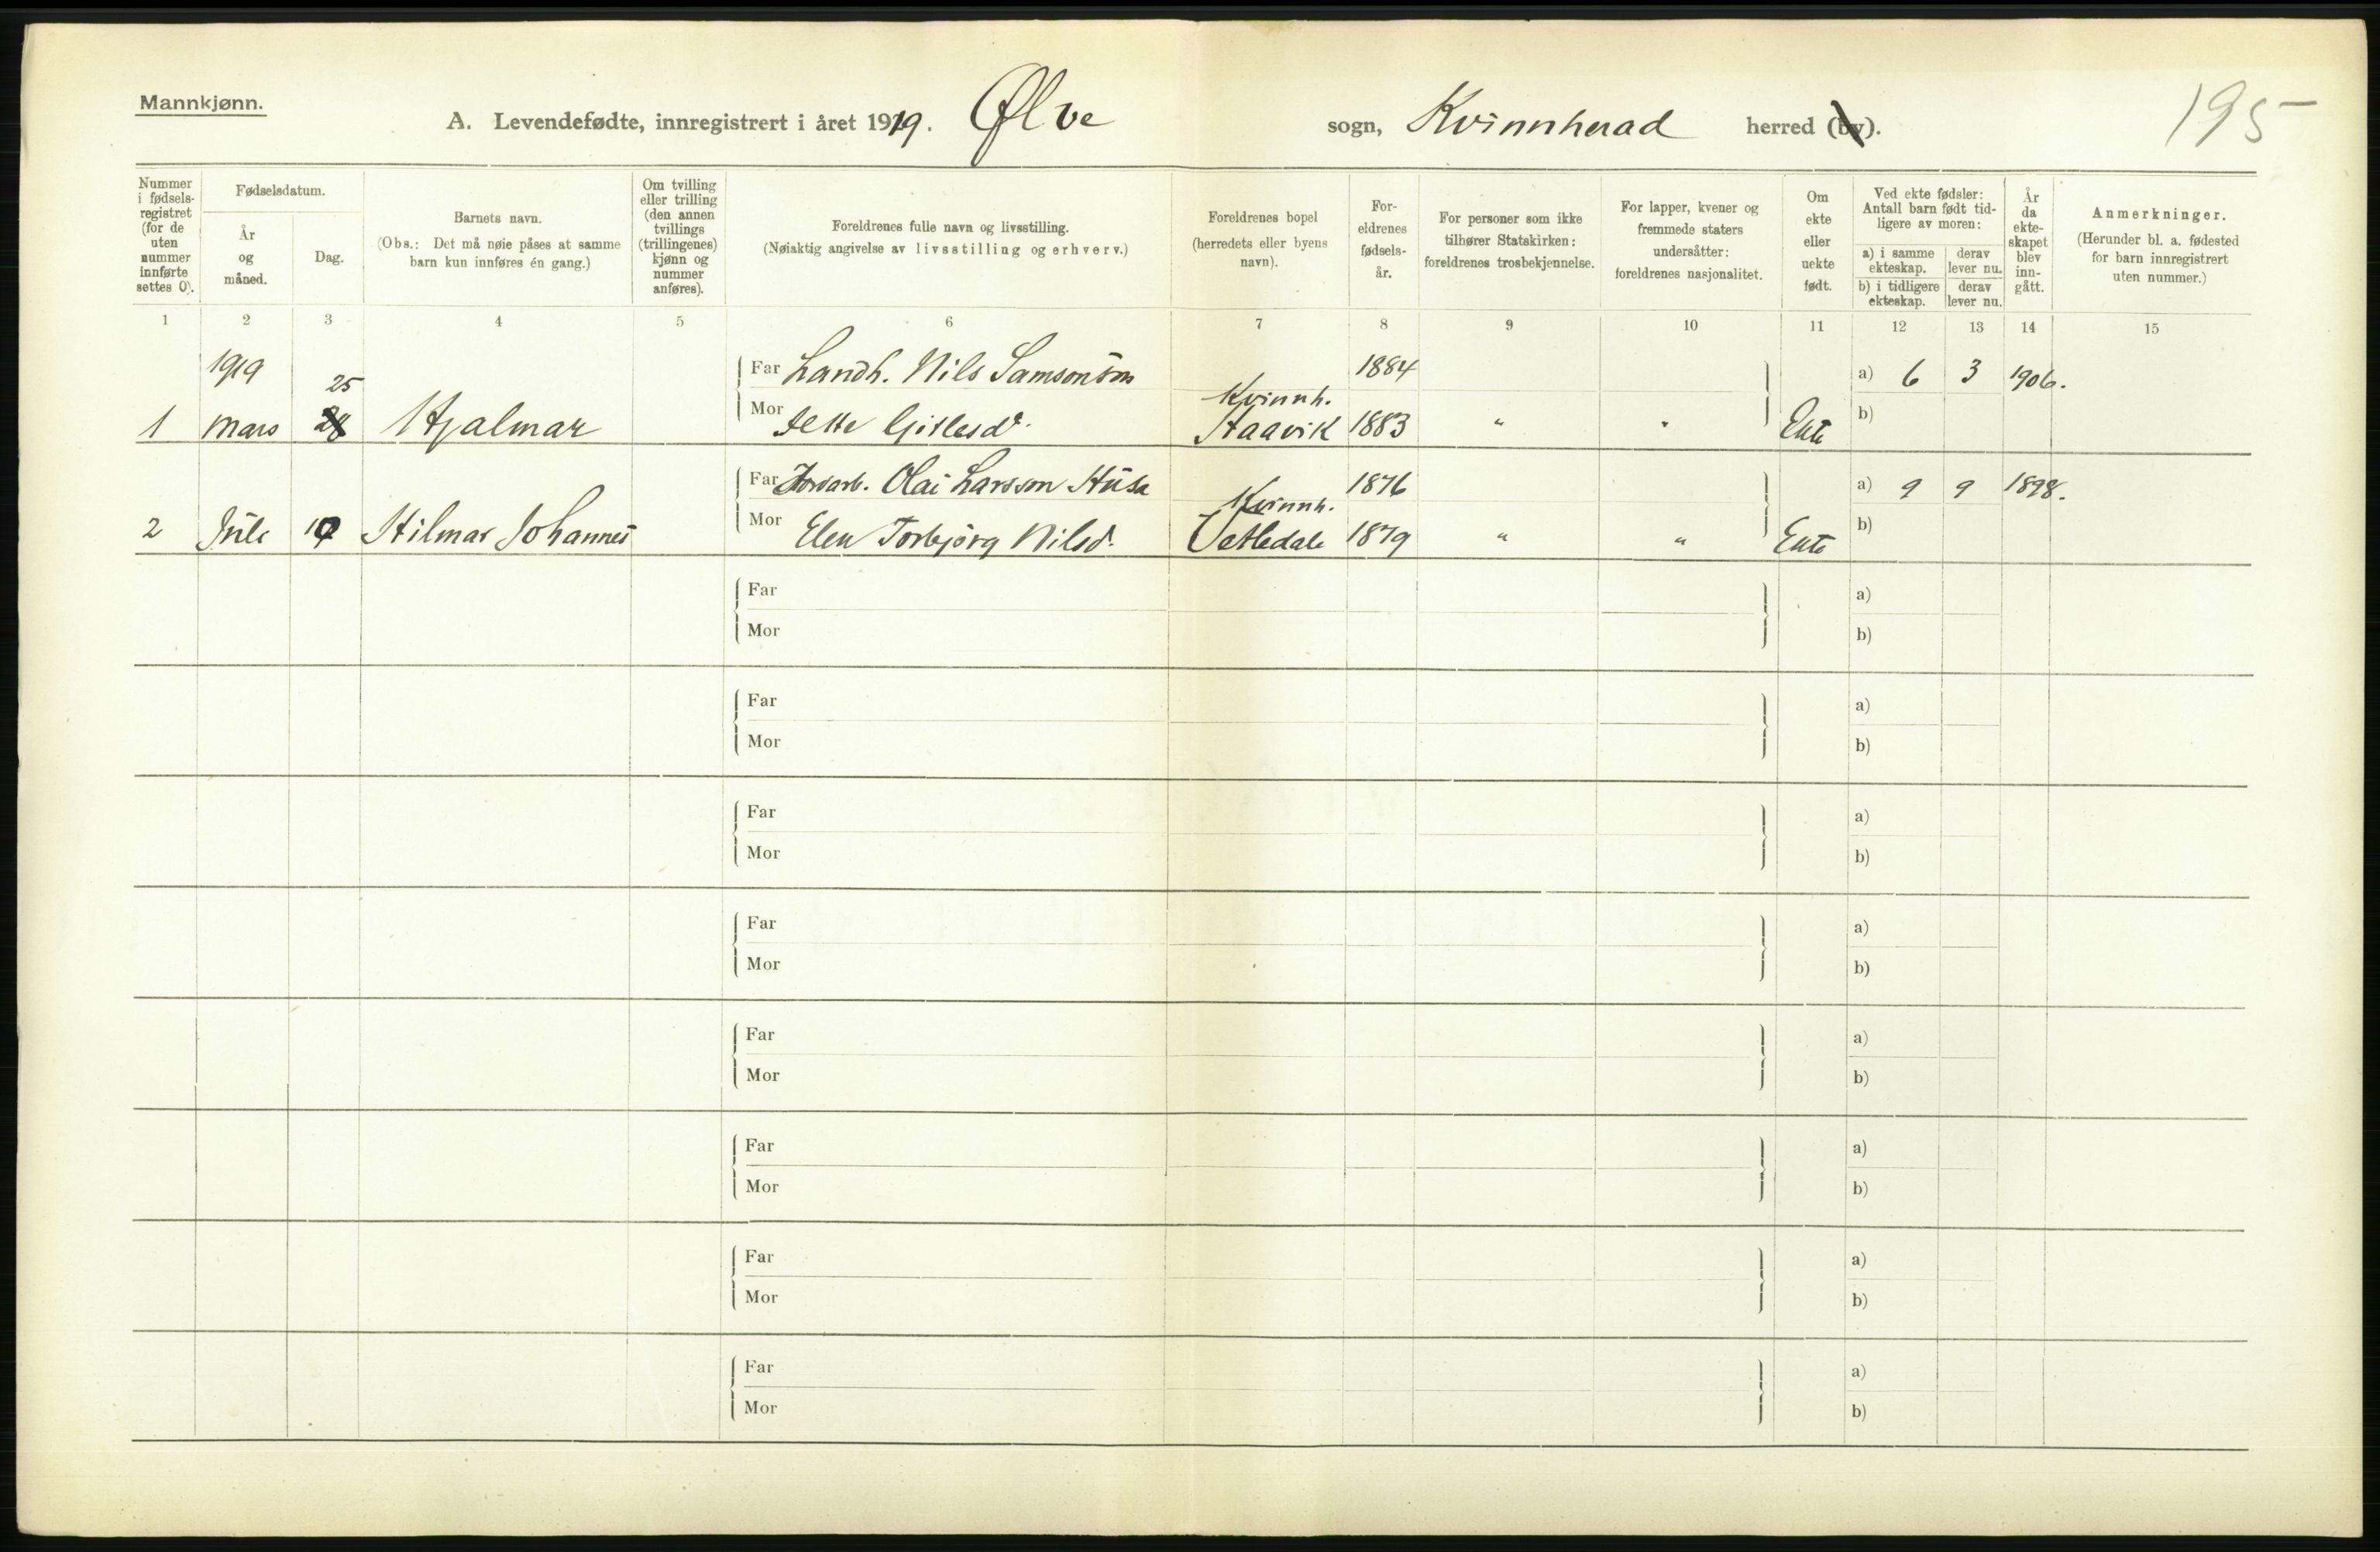 Mannkjønn.
A. Levendefødte, innregistrert i året 1919. Ølve sogn, Kvinnherad herred (by).
195
Nummer i fødsels-registret (for de uten nummer innførte settes 0).
Fødselsdatum.
År og måned.
Dag.
Barnets navn.
(Obs.: Det må nøie påses at samme barn kun innføres én gang.)
Om tvilling eller trilling (den annen tvillings (trillingenes) kjønn og nummer anføres).
Foreldrenes fulle navn og livsstilling.
(Nøiaktig angivelse av livsstilling og erhverv.)
Foreldrenes bopel
(herredets eller byens navn).
For-eldrenes fødsels-år.
For personer som ikke tilhører Statskirken: foreldrenes trosbekjennelse.
For lapper, kvener og fremmede staters undersåtter: foreldrenes nasjonalitet.
Om ekte eller uekte født.
Ved ekte fødsler: Antall barn født tid-ligere av moren:
a) i samme ekteskap.
derav lever nu.
b) i tidligere ekteskap.
derav lever nu.
År da ekte-skapet blev inn-gått.
Anmerkninger.
(Herunder bl. a. fødested for barn innregistrert uten nummer.)
1 2 3 4 5 6 7 8 9 10 11 12 13 14 15
1919 25 Far Landh. Nils Samsonson 1884 a) 6 3 1906.
1 Mars 28 Hjalmar Mor Jette Gitlesd. Kvinnh. Haavik 1883 " " Ekte b)
Far Jordarb. Olai Larsson Husa 1876 a) 9 9 1898.
2 Juli 10 Hilmar Johannes Mor Elen Torbjørg Nilsd. Kvinnh. Vetledale 1879 " " Ekte b)
Far a)
Mor b)
Far a)
Mor b)
Far a)
Mor b)
Far a)
Mor b)
Far a)
Mor b)
Far a)
Mor b)
Far a)
Mor b)
Far a)
Mor b)